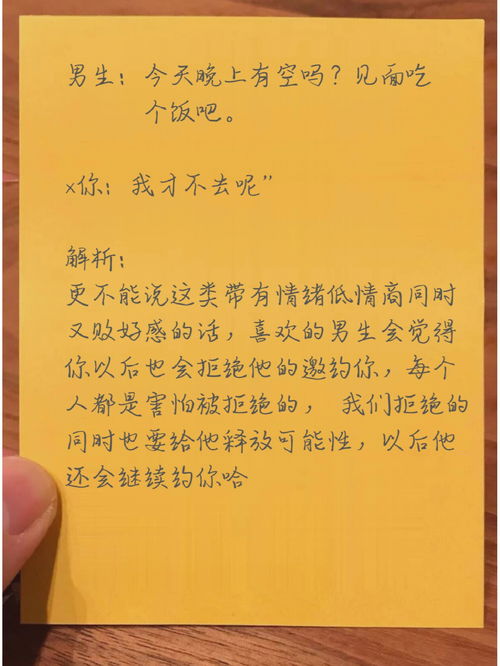 男生：今天晚上有空吗？见面吃
个饭吧。
x你：我才不去呢”
解析：
更不能说这类带有情绪低情商同时
又败好感的话，喜欢的男生会觉得
你以后也会拒绝他的邀约你，每个
人都是害怕被拒绝的，我们拒绝的
同时也要给他释放可能性，以后他
还会继续约你哈